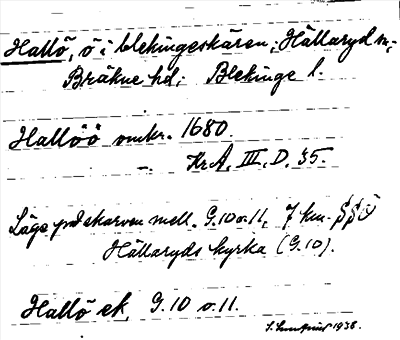 Hallö, ö i blekingeskären; Hällaryd sn;
Bräkne hd; Blekinge l.
Hallöö omkr. 1680.
—. Kr A. III. D. 35.
Läge på skarven mell. G. 10 o. 11, 7 km. SSÖ
Hällaryds kyrka (G. 10).
Hallö ek. G. 10 o. 11.
1938.